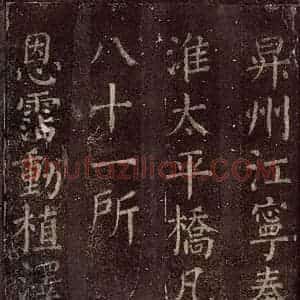 昇州江寧秦
淮太平橋凡
八十一所
恩霑動植澤
shufaziliao.com